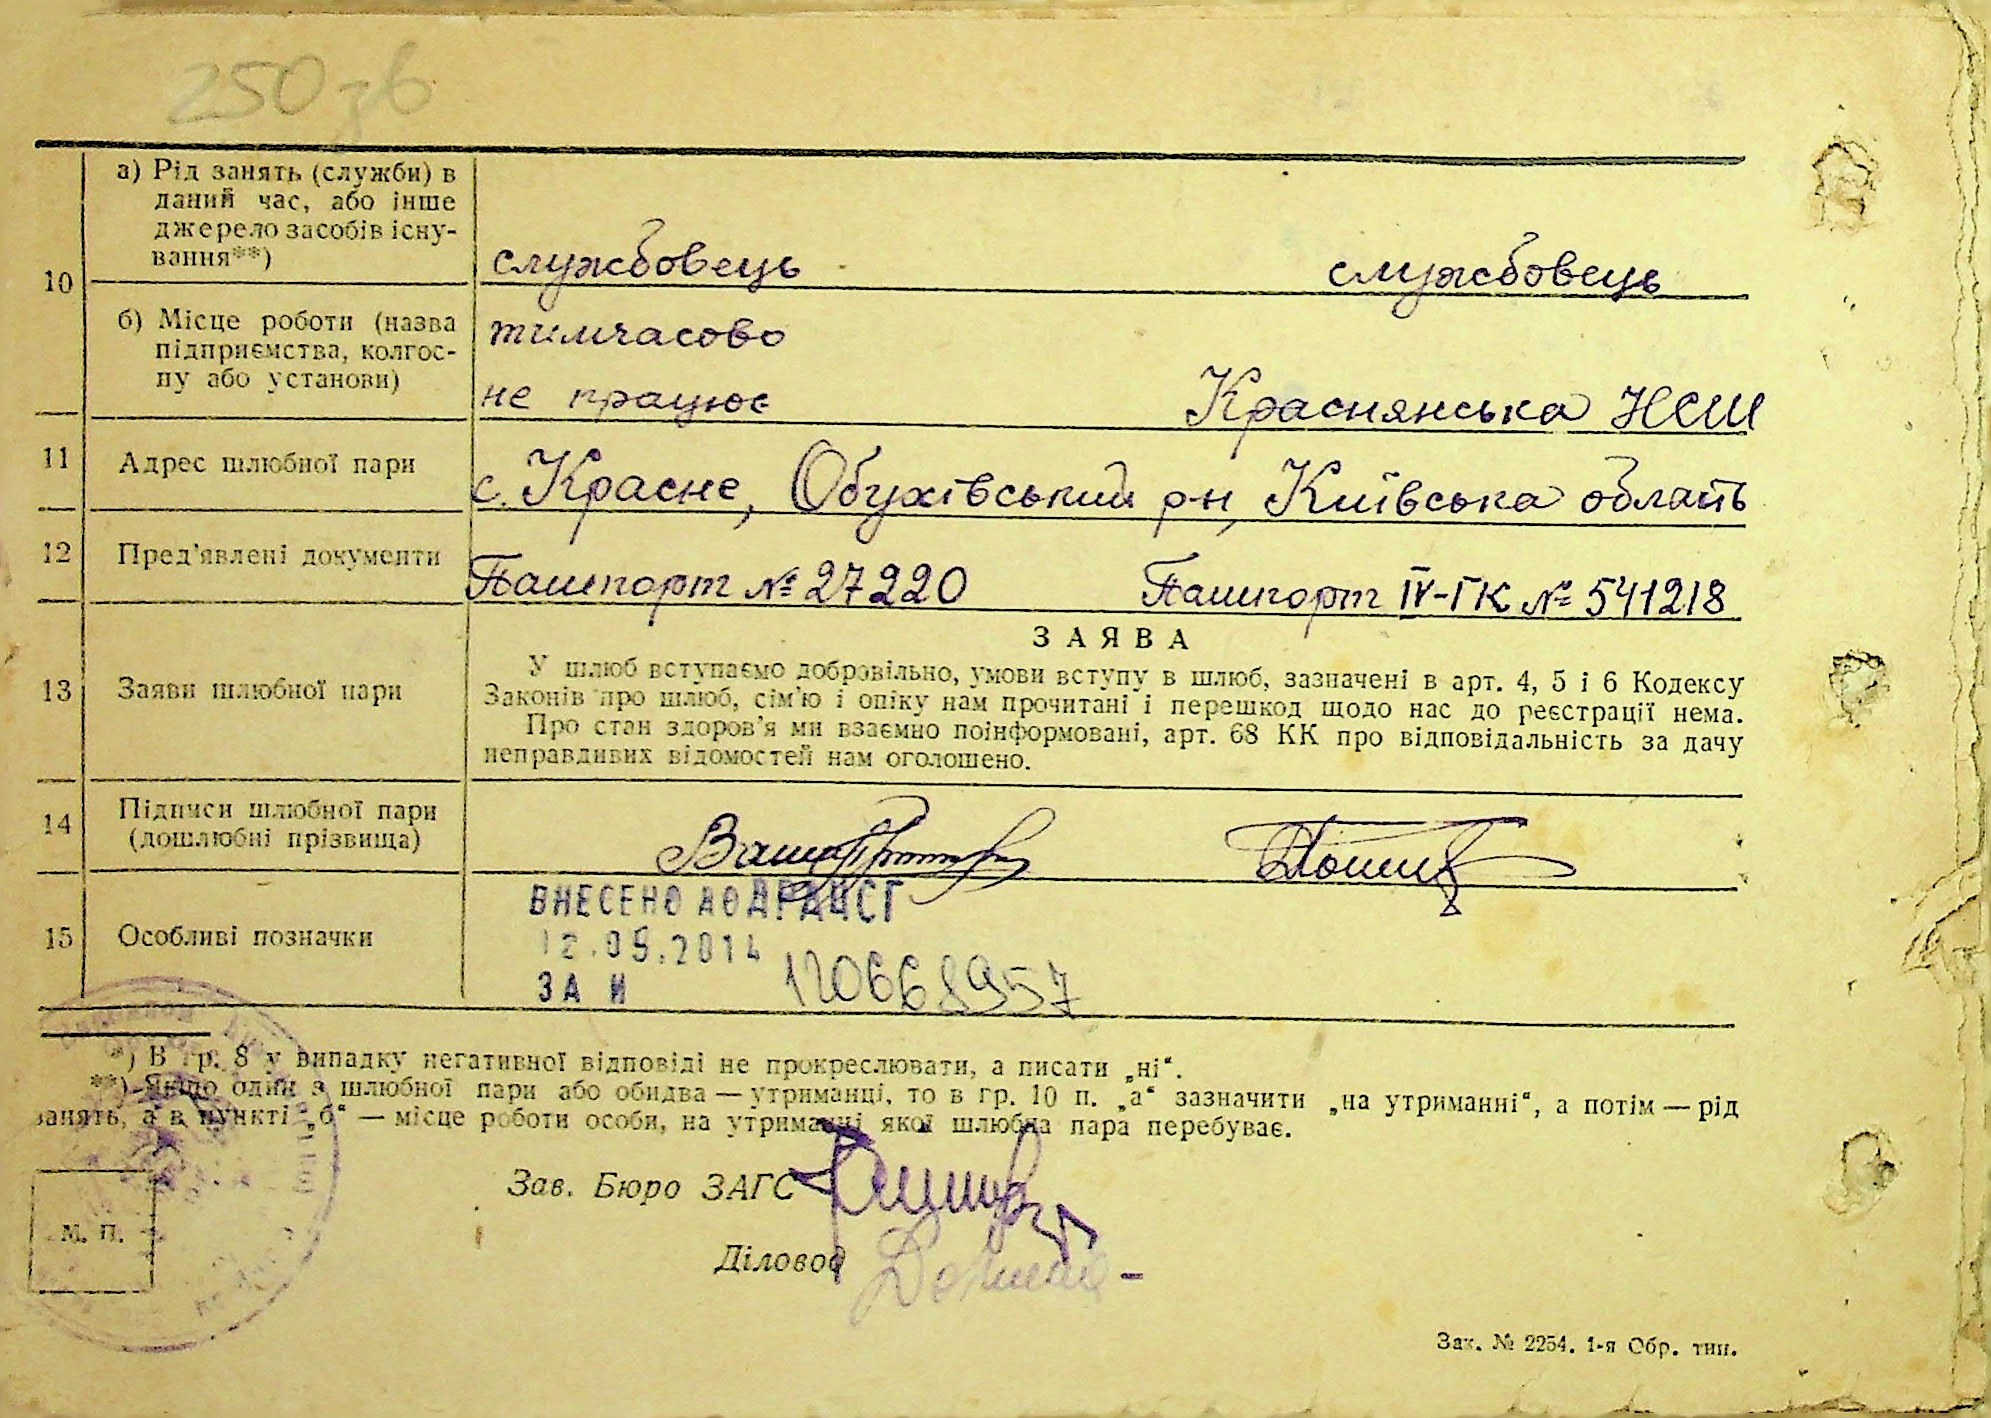 250 зв
а) Рід занять (служби) в
даний час, або інше
джерело засобів існу-
вання**)
службовець
службовець
10
б) Місце роботи (назва
підприємства, колгос-
пу або установи)
тимчасово
не працює
Краснянська НСШ
11
Адрес шлюбної пари
с. Красне, Обухівський р-н, Київська область
12
Пред'явлені документи
Пашпорт № 27220
Пашпорт IV-ГК № 541218
13
Заяви шлюбної пари
ЗАЯВА
У шлюб вступаємо добровільно, умови вступу в шлюб, зазначені в арт. 4, 5 і 6 Кодексу
Законів про шлюб, сім'ю і опіку нам прочитані і перешкод щодо нас до реєстрації нема.
Про стан здоров'я ми взаємно поінформовані, арт. 68 КК про відповідальність за дачу
неправдивих відомостей нам оголошено.
14
Підписи шлюбної пари
(дошлюбні прізвища)
15
Особливі позначки
ВНЕСЕНО ДО ДРАЦСГ
12.05.2014
ЗА N 120668957
*) В гр. 8 у випадку негативної відповіді не прокреслювати, а писати „ні“.
**) Якщо один з шлюбної пари або обидва — утриманці, то в гр. 10 п. „а“ зазначити „на утриманні“, а потім — рід
занять, а в пункті „б“ — місце роботи особи, на утриманні якої шлюбна пара перебуває.
Зав. Бюро ЗАГС
Діловод
М. П.
Зак. № 2254. 1-я Обр. тип.